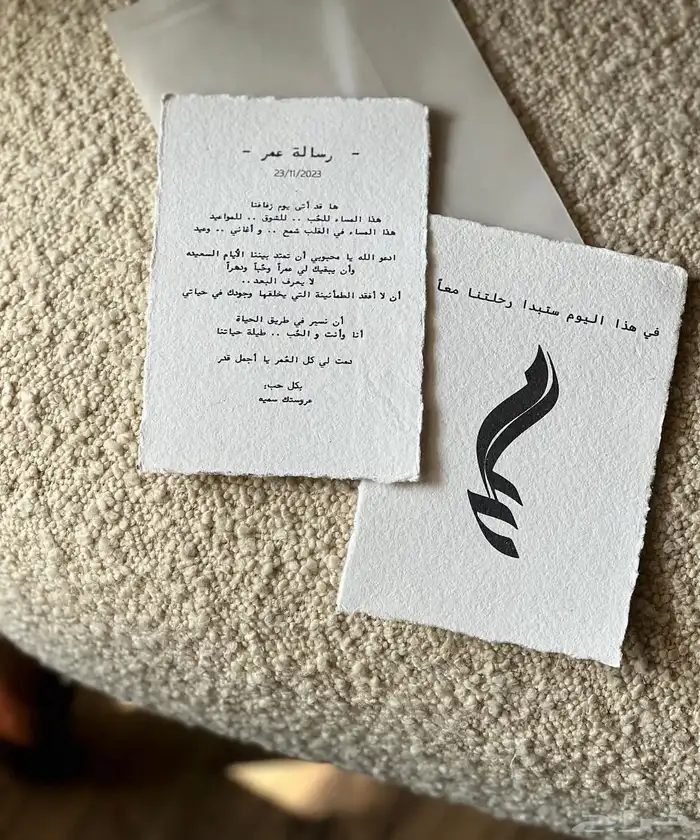 - رسالة عمر -
23/11/2023
ها قد أتى يوم زفافنا
هذا المساء للحُب .. للشوق .. للمواعيد
هذا المساء في القلب شمع .. و أغاني .. وعيد
ادعو الله يا محبوبي أن تمتد بيننا الأيام السعيده
وأن يبقيك لي عمراً وحُباً ودهراً
لا يعرف البعد..
أن لا أفقد الطمأنينة التي يخلقها وجودك في حياتي
أن نسير في طريق الحياة
أنا وأنت و الحُب .. طيلة حياتنا
دمت لي كل العُمر يا أجمل قدر
بكل حب،
عروستك سميه
في هذا اليوم ستبدا رحلتنا معاً